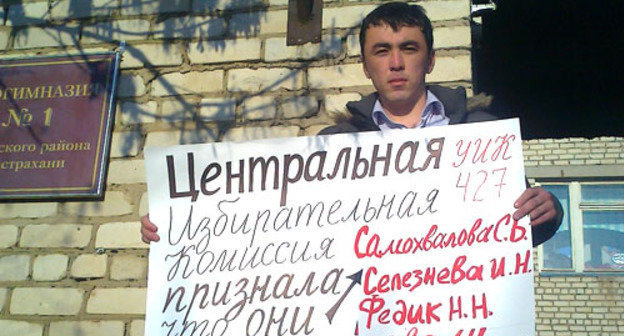 ОГИМНАЗИЯ
№ 1
ского района
страхани
Центральная УИК
427
Избирательная
Комиссия
признала
что они
Самохвалова С.Б.
Селезнева И.Н.
Федик Н.Н.